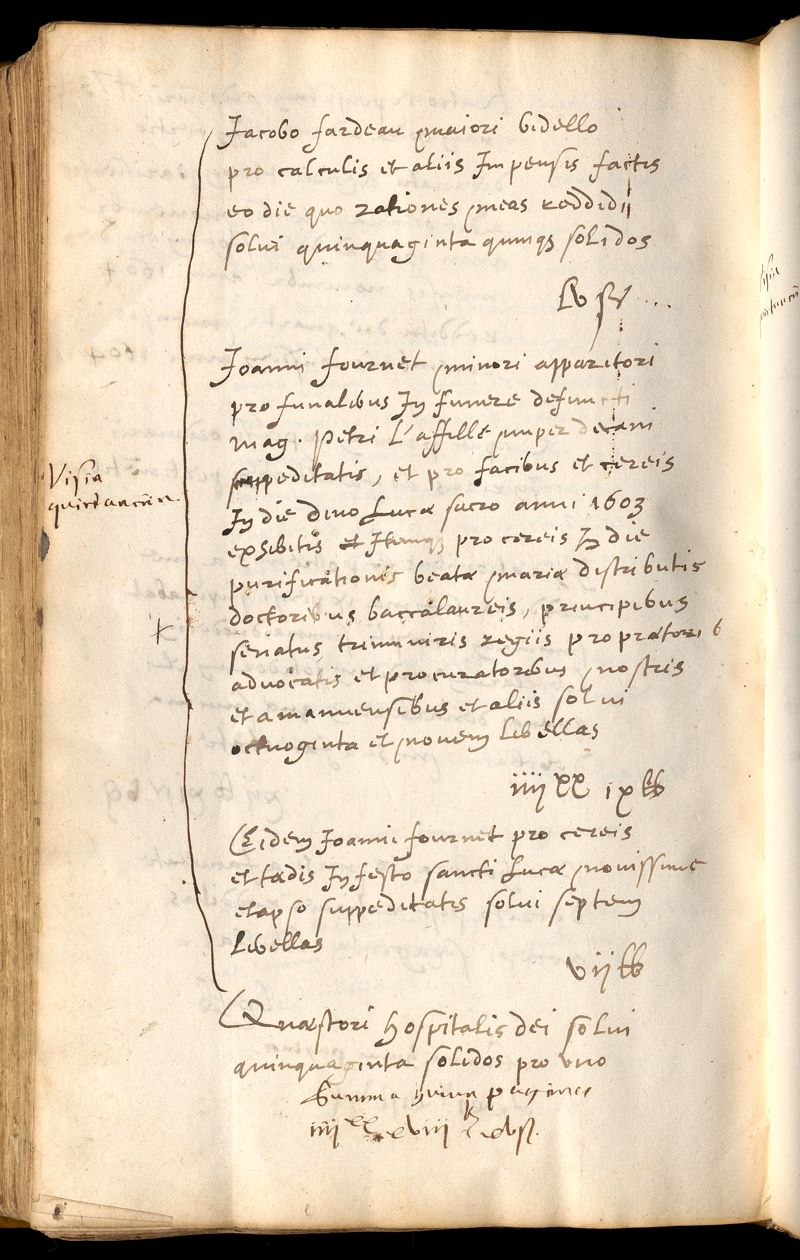 Jacobo fardeau maiori bidello
pro calculis et aliis Impensis factis
eo die quo rationes meas reddidi
solui quinquaginta quinq3 solidos
Lv s
Joanni fournet minori apparitori
pro funalibus In funere defuncti
mag. Petri L'affille nuper decani
suppeditatis, et pro facibus et cereis
In die divo Lucæ sacro anni 1603
exhibitis et Itemq3 pro cereis In die
purificationis beatæ mariæ distributis
doctoribus baccalaureis, principibus
senatus, triumviris regiis proprætori 6
advocatis et procuratoribus nostris
et amanuensibus et aliis solui
octuoginta et novem libellas
iiii XX ix lb
Visia
quictanciæ
Eidem Joanni fournet pro cereis
et tædis In festo sancti Lucæ novissime
elapso suppeditatis solui septem
libellas
vii lb
Quæstori hospitalis dei solui
quinquaginta solidos pro uno
Summa huius paginæ
iiii XX xviii lb xv s.